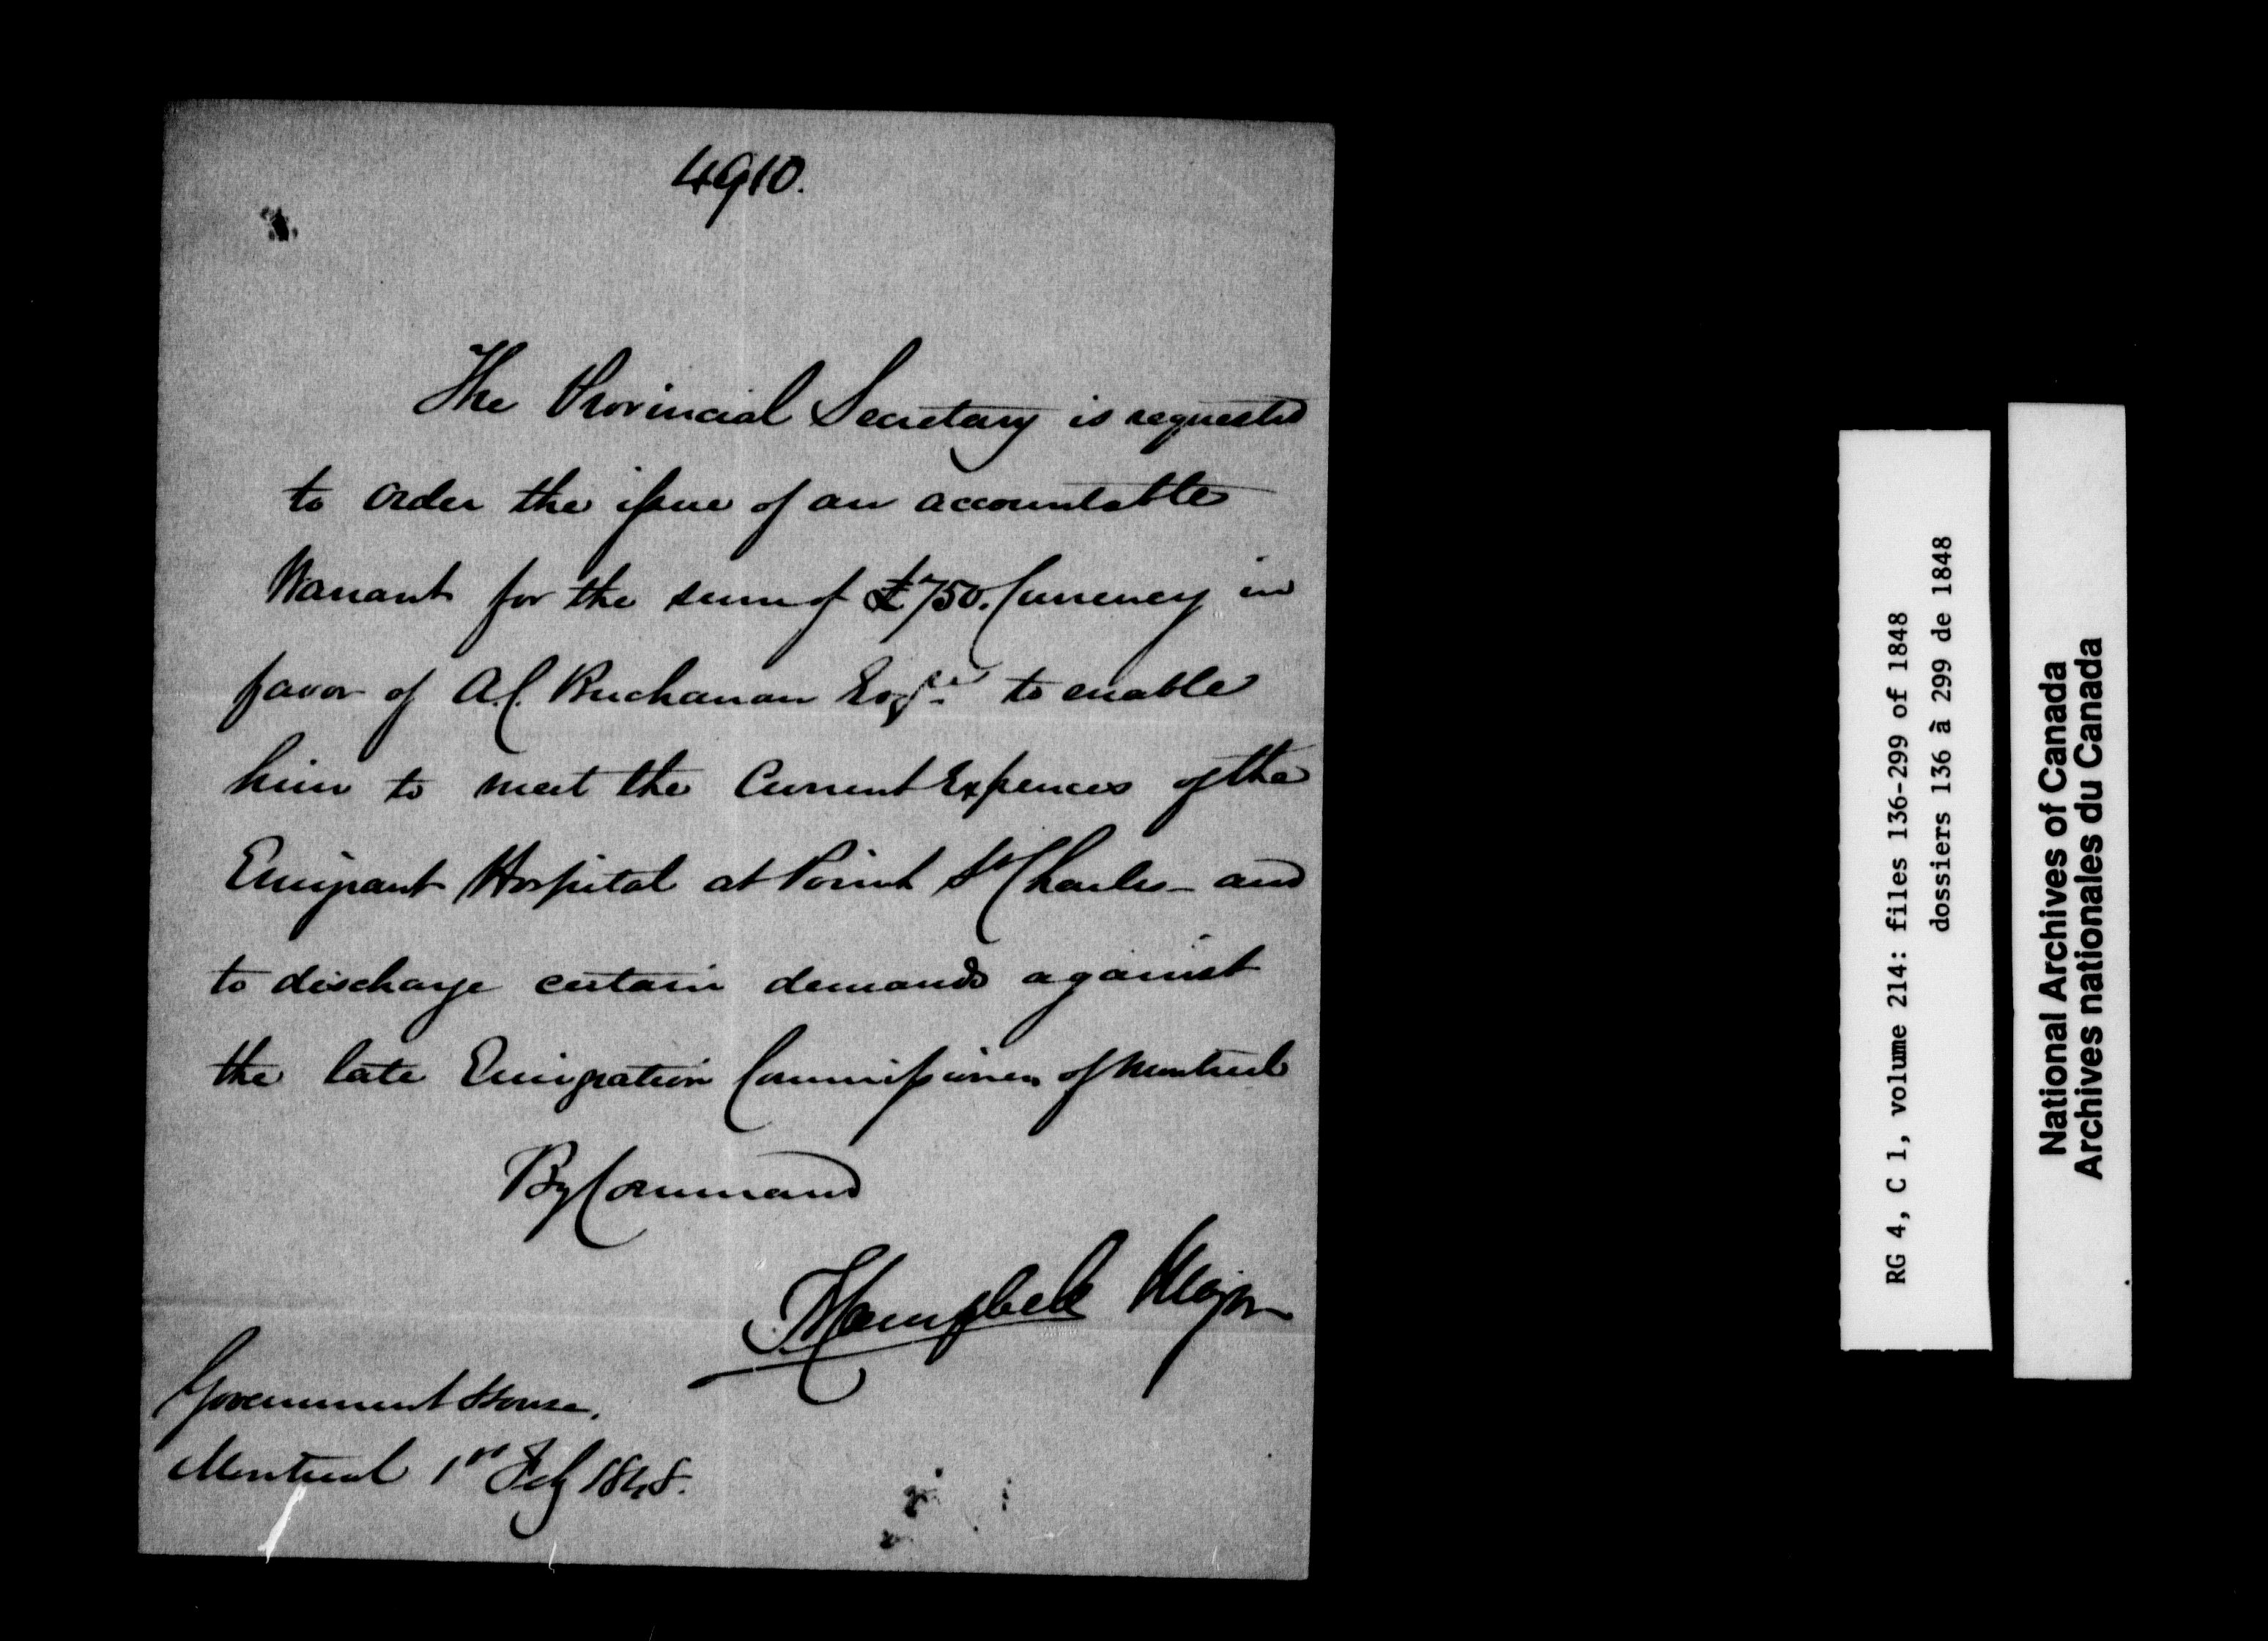 4910.
The Provincial Secretary is requested
to order the issue of an accountable
Warrant for the sum of £750. Currency in
favor of A.C. Buchanan Esqre to enable
him to meet the Current Expences of the
Emigrant Hospital at Point St Charles - and
to discharge certain demands against
the late Emigration Commissioners of Montreal
By Command
T Campbell Major
Government House.
Montreal 1st Feby 1848.
RG 4, C 1, volume 214: files 136-299 of 1848
dossiers 136 à 299 de 1848
National Archives of Canada
Archives nationales du Canada